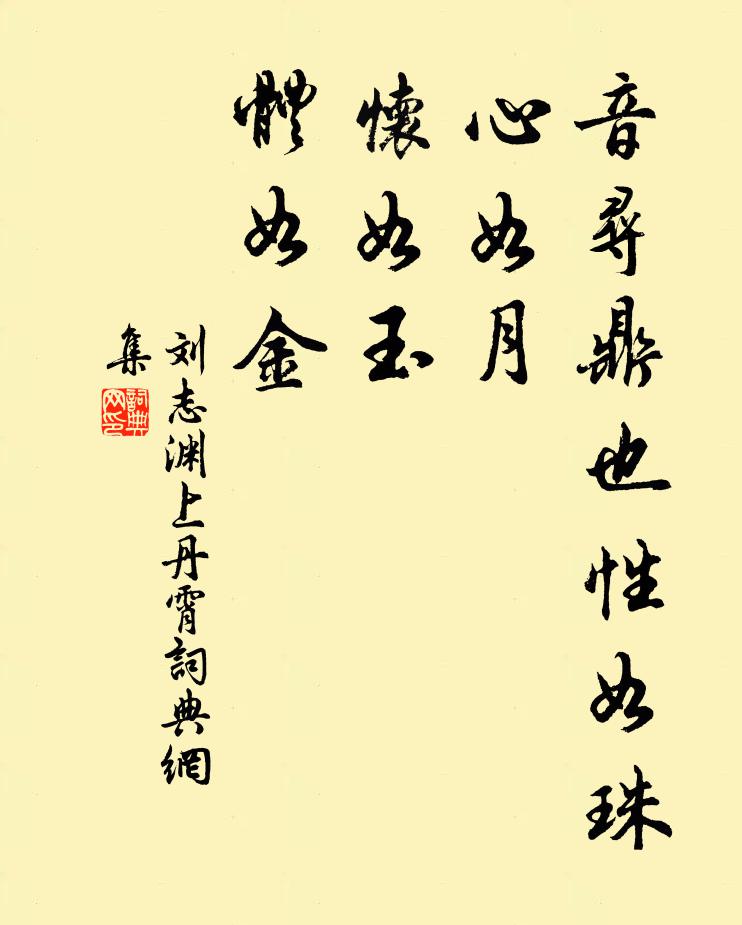 音尋鼎也性如珠
心如月
懷如玉
體如金
刘志渊上丹霄詞典網
集
詞典
网印